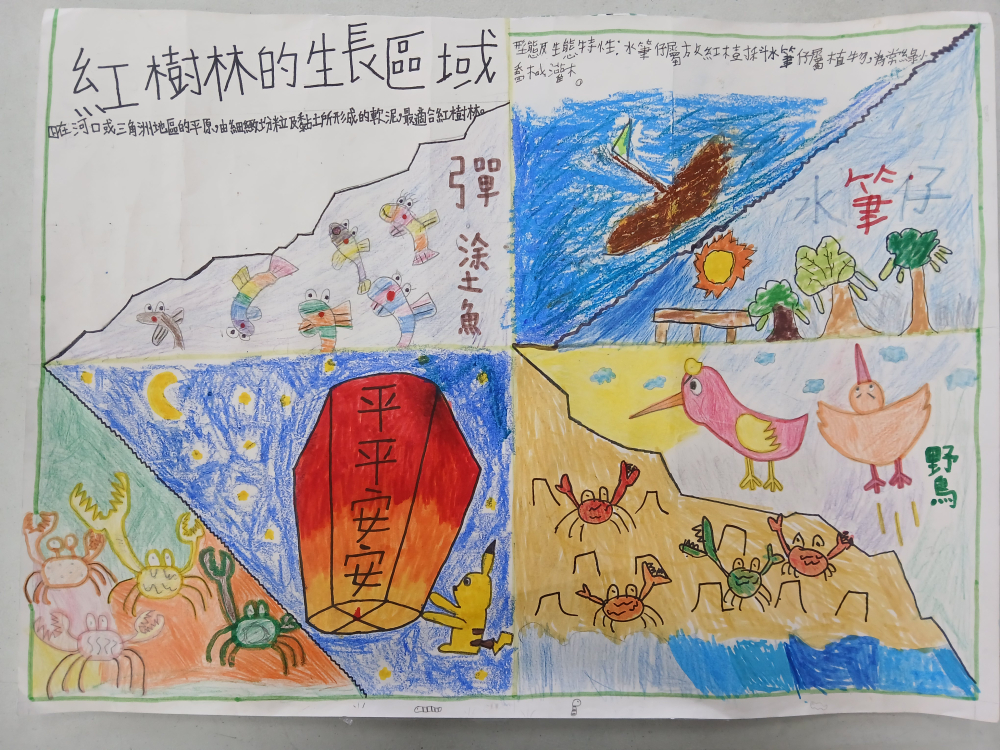 紅樹林的生長區域
在河口或三角洲地區的平原,由細緻坋粒及黏土所形成的軟泥,最適合紅樹林。
型態及生態特性:水筆仔屬於紅樹科水筆仔屬植物,為常綠小
喬木或灌木。
彈塗魚
水筆仔
平平安安
野鳥